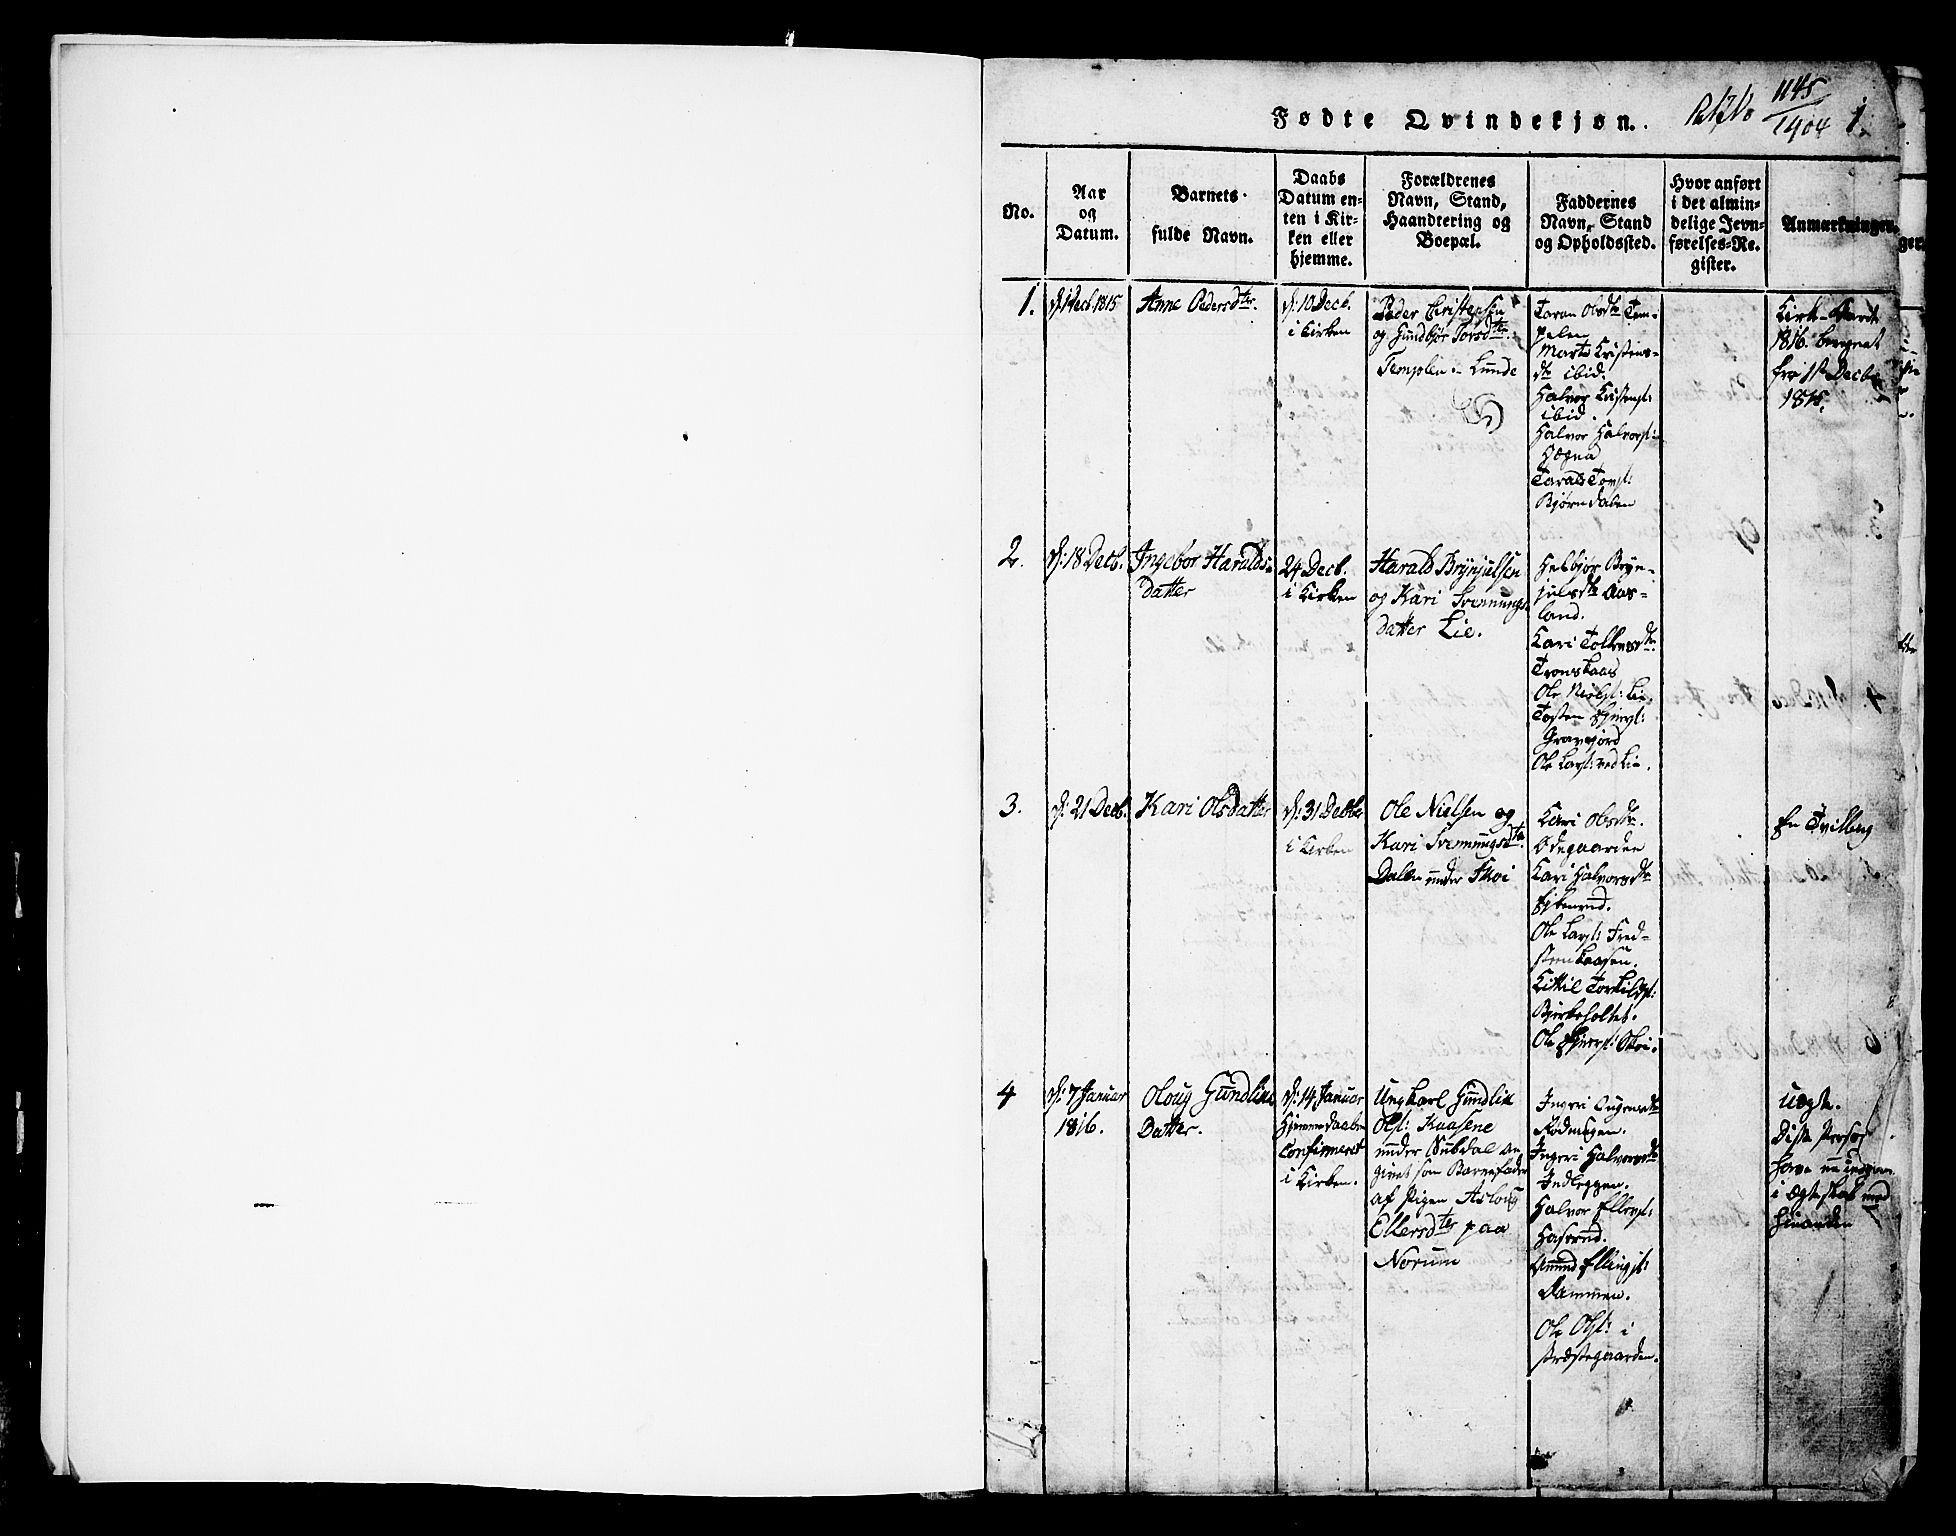 Fødte Qvindekjøn.
1145
1904
1.
No.
Aar
og
Datum.
Barnets
fulde Navn.
Daabs
Datum en-
ten i Kir-
ken eller
hjemme.
Forældrenes
Navn, Stand,
Haandtering og
Boepæl.
Faddernes
Navn, Stand
og Opholdssted.
Hvor anført
i det almin-
delige Jevn-
førelses-Re-
gister.
Anmærkninger.
1.
d: 1 Decb 1815
Anne Pedersdter.
d: 10 Decb.
i Kirken
Peder Christensen
og Gundbjør Torsdter
Templen - Lunde
Taran Olsdtr Tem-
pelen
Marte Kristens-
dtr ibid.
Halvor Kristensl:
ibid.
Halvor Halvorsl:
Hægna
Tarald Tovsl:
Bjørndalen
Kirke-Aaret
1816. beregnet
fra 1st Decbr
1815.
2.
d: 18 Decb.
Ingebor Haralds-
datter
24 Decb.
i Kirken
Harald Brynjulsen
og Kari Svennungs
datter Lie.
Helbjør Bryn-
julsdtr Aas-
land.
Kari Tollevsdtr.
Tronskaas
Ole Nielsl: Lie.
Gravejord
Ole Larsl: ved Lie.
3.
d: 21 Decb.
Kari Olsdatter
d: 31 Decbr
i Kirken
Ole Nielsen og
Kari Svennungsdtr.
Dalen under Skoi
Kari Olsdtr.
Ødegaarden
Kari Halvorsdtr
Ole Larsl: Fred-
steenkaasen.
Kittil Torkildsl:
Bjerkeholtet.
En Tvilling
4
d: 7 Januar
1816.
Oloug Gundliks
Datter.
d: 14 Januar
Hjemmedaaben
confirmeret
i Kirken.
Ungkarl Gundlik
Olsl: Kaasene
under Subdal an-
givet som Barnefader
af Pigen Asloug
Ellersdter paa
Norum
Ingeri Halvorsdtr
Indleggen.
Halvor Ellefsl:
Amund Ellingsl:
Dammen.
Ole Olsl: i
Præstegaarden.
Uægte.
i Ægteskab med
hinanden